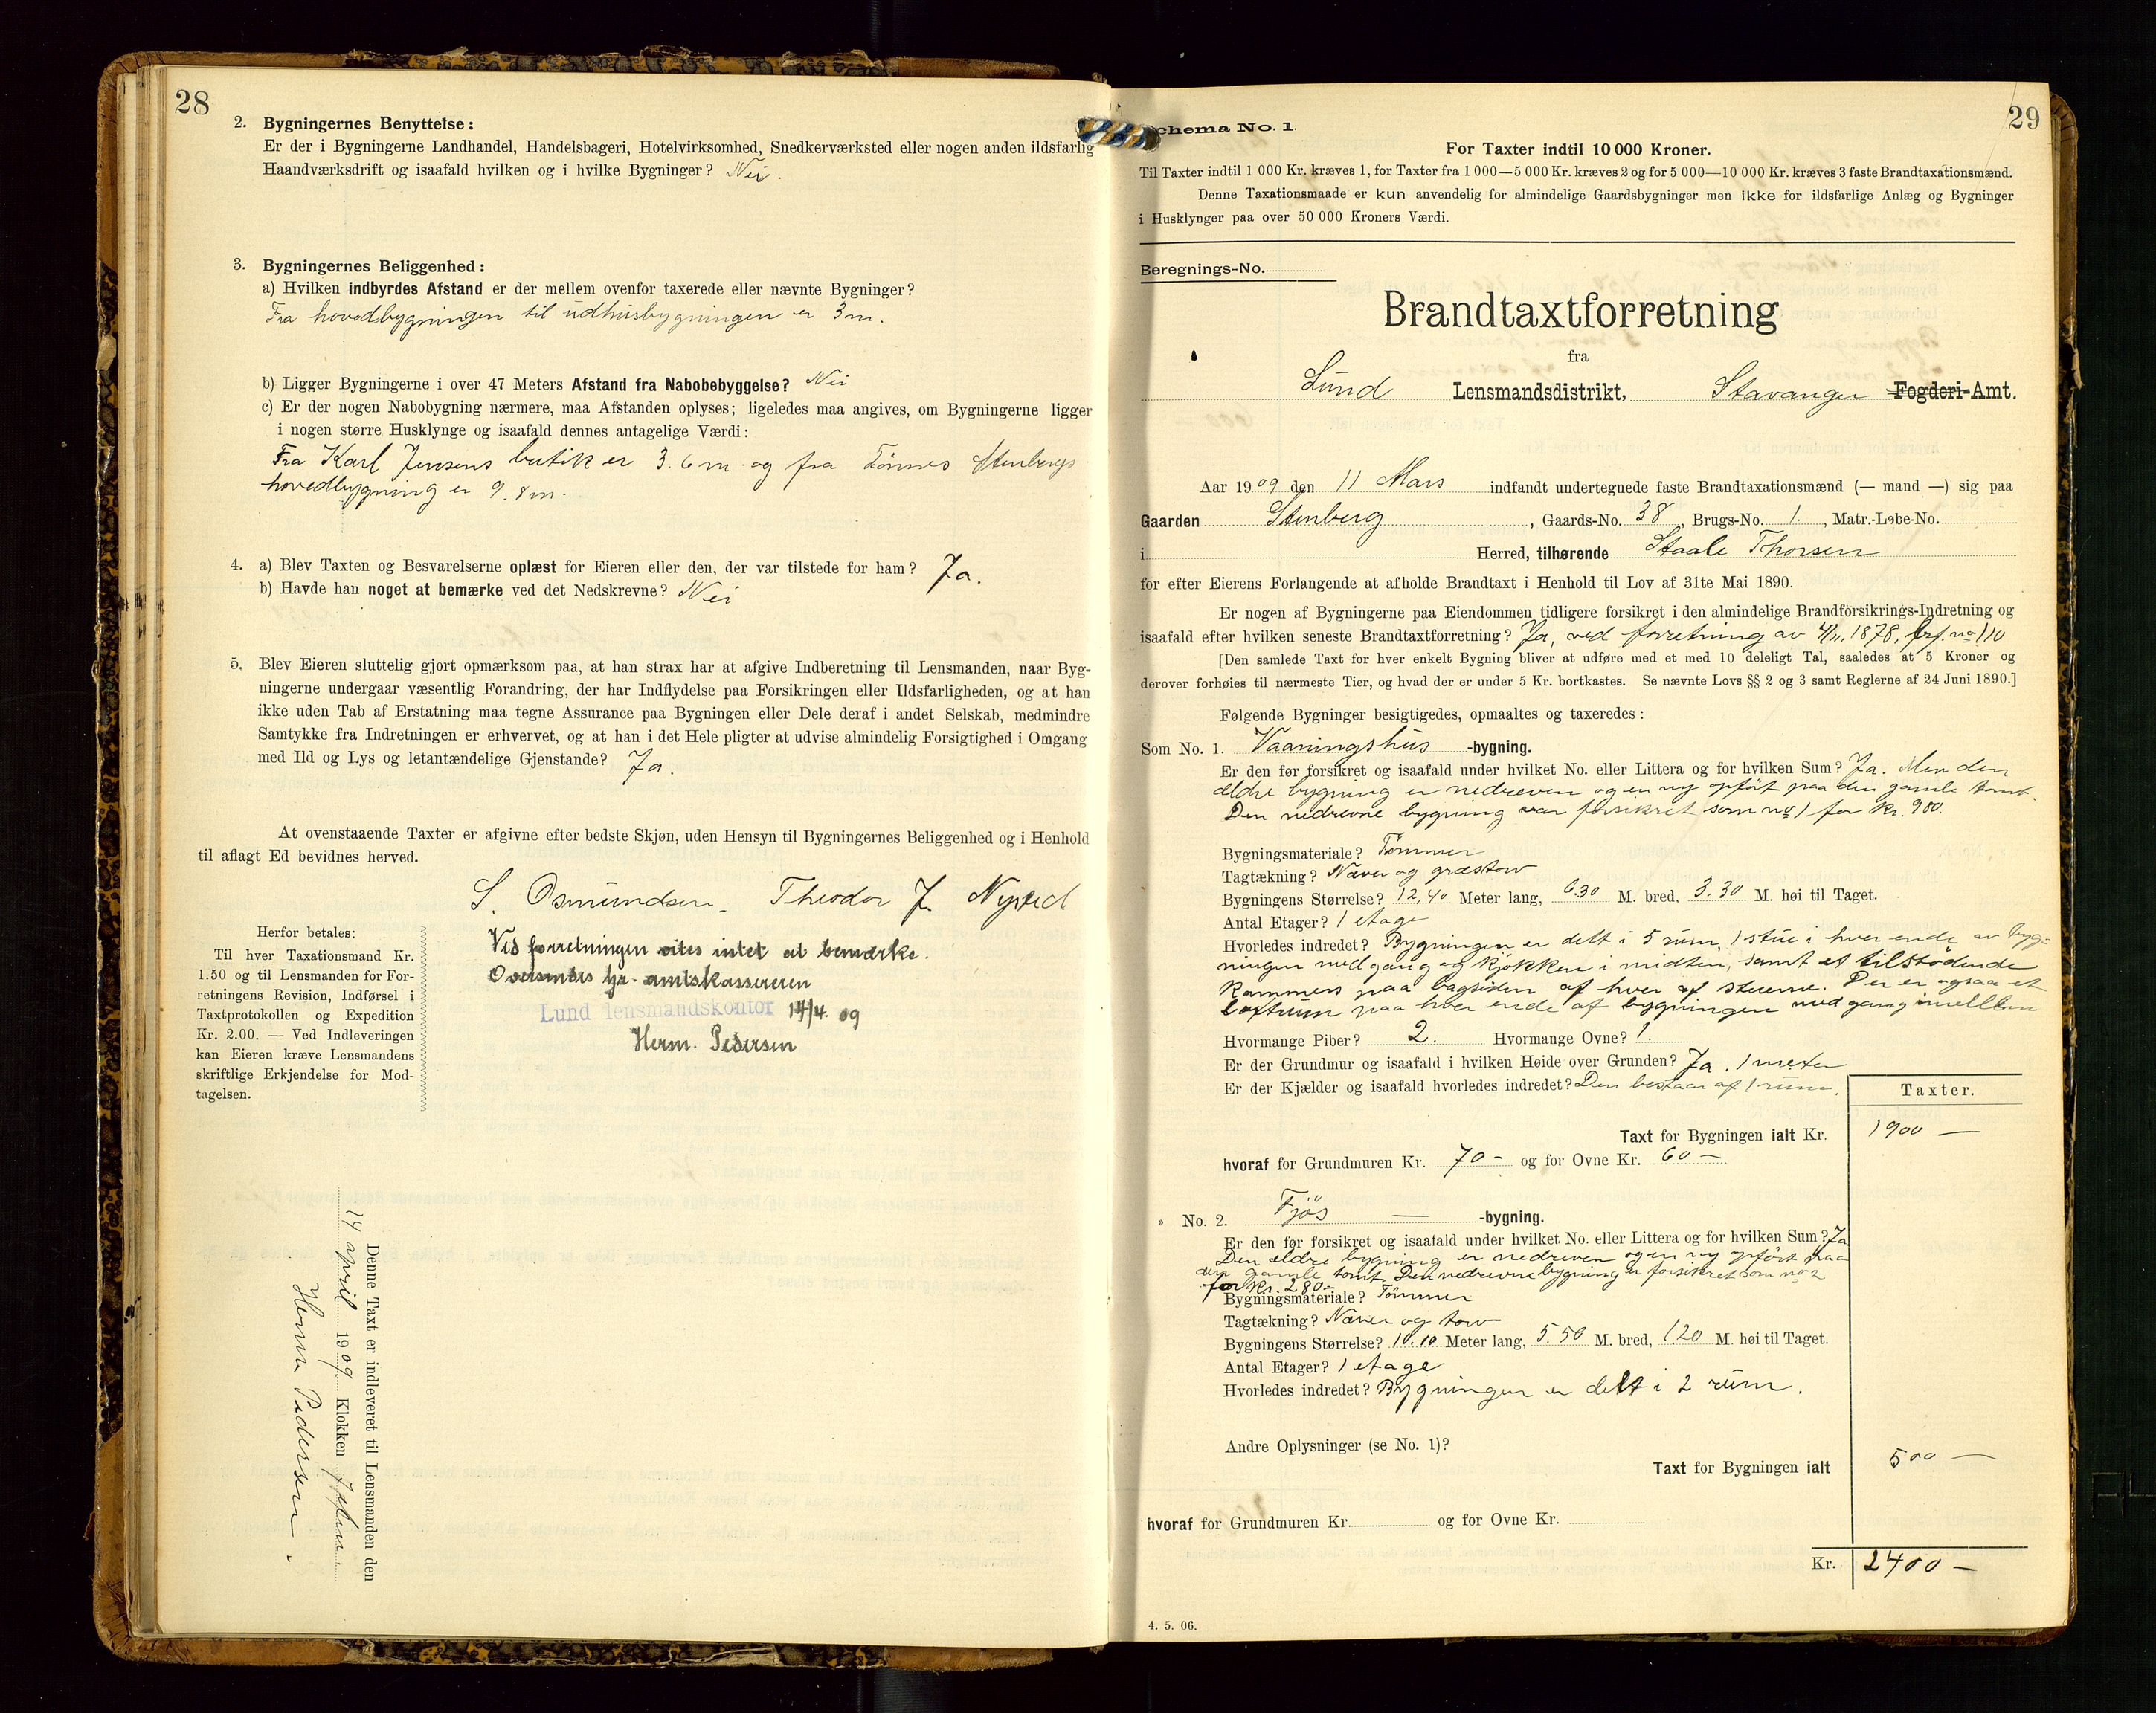 28
2. Bygningernes Benyttelse:
Er der i Bygningerne Landhandel, Handelsbageri, Hotelvirksomhed, Snedkerværksted eller nogen anden ildsfarlig
Haandværksdrift og isaafald hvilken og i hvilke Bygninger? Nei.
3. Bygningernes Beliggenhed:
a) Hvilken indbyrdes Afstand er der mellem ovenfor taxerede eller nævnte Bygninger?
Fra hovedbygningen til udhusbygningen er 3 m.
b) Ligger Bygningerne i over 47 Meters Afstand fra Nabobebyggelse? Nei
c) Er der nogen Nabobygning nærmere, maa Afstanden oplyses; ligeledes maa angives, om Bygningerne ligger
i nogen større Husklynge og isaafald dennes antagelige Værdi:
Fra Karl Jensens butik er 3.6 m. og fra Tønnes Stenbergs
hovedbygning er 9.8 m.
4. a) Blev Taxten og Besvarelserne oplæst for Eieren eller den, der var tilstede for ham? Ja.
b) Havde han noget at bemærke ved det Nedskrevne? Nei
5. Blev Eieren sluttelig gjort opmærksom paa, at han strax har at afgive Indberetning til Lensmanden, naar Byg-
ningerne undergaar væsentlig Forandring, der har Indflydelse paa Forsikringen eller Ildsfarligheden, og at han
ikke uden Tab af Erstatning maa tegne Assurance paa Bygningen eller Dele deraf i andet Selskab, medmindre
Samtykke fra Indretningen er erhvervet, og at han i det Hele pligter at udvise almindelig Forsigtighed i Omgang
med Ild og Lys og letantændelige Gjenstande? Ja.
At ovenstaaende Taxter er afgivne efter bedste Skjøn, uden Hensyn til Bygningernes Beliggenhed og i Henhold
til aflagt Ed bevidnes herved.
S. Osmundsen. Theodor J. Nysted
Herfor betales:
Til hver Taxationsmand Kr.
1.50 og til Lensmanden for For-
retningens Revision, Indførsel i
Taxtprotokollen og Expedition
Kr. 2.00. — Ved Indleveringen
kan Eieren kræve Lensmandens
skriftlige Erkjendelse for Mod-
tagelsen.
Ved forretningen vites intet at bemærke.
Oversendes hr. amtskassereren
Lund lensmandskontor 14/4. 09
Herm. Pedersen
Denne Taxt er indleveret til Lensmanden den
14 april 1909. Klokken
Herm Pedersen.
29
Schema No. 1.
For Taxter indtil 10 000 Kroner.
Til Taxter indtil 1 000 Kr. kræves 1, for Taxter fra 1 000—5 000 Kr. kræves 2 og for 5 000—10 000 Kr. kræves 3 faste Brandtaxationsmænd.
Denne Taxationsmaade er kun anvendelig for almindelige Gaardsbygninger men ikke for ildsfarlige Anlæg og Bygninger
i Husklynger paa over 50 000 Kroners Værdi.
Beregnings-No.
Brandtaxtforretning
fra
Lund Lensmandsdistrikt, Stavanger Fogderi-Amt.
Aar 1909 den 11 Mars indfandt undertegnede faste Brandtaxationsmænd (— mand —) sig paa
Gaarden Stenberg, Gaards-No. 38, Brugs-No. 1., Matr.-Løbe-No.
i Herred, tilhørende Staale Thorsen
for efter Eierens Forlangende at afholde Brandtaxt i Henhold til Lov af 31te Mai 1890.
Er nogen af Bygningerne paa Eiendommen tidligere forsikret i den almindelige Brandforsikrings-Indretning og
isaafald efter hvilken seneste Brandtaxtforretning? Ja, ved forretning av 4/11. 1878, brf. no 110
[Den samlede Taxt for hver enkelt Bygning bliver at udføre med et med 10 deleligt Tal, saaledes at 5 Kroner og
derover forhøies til nærmeste Tier, og hvad der er under 5 Kr. bortkastes. Se nævnte Lovs §§ 2 og 3 samt Reglerne af 24 Juni 1890.]
Følgende Bygninger besigtigedes, opmaaltes og taxeredes:
Som No. 1. Vaaningshus -bygning.
Er den før forsikret og isaafald under hvilket No. eller Littera og for hvilken Sum? Ja. Men den
ældre bygning er nedreven og en ny opført paa den gamle tomt.
Den nedrevne bygning var forsikret som no 1 for kr. 900.
Bygningsmateriale? Tømmer
Tagtækning? Næver og græstorv
Bygningens Størrelse? 12,40 Meter lang, 6.30 M. bred, 3.30 M. høi til Taget.
Antal Etager? 1 etage
Hvorledes indredet? Bygningen er delt i 5 rum, 1 stue i hver ende av byg-
ningen med gang og kjøkken i midten, samt et tilstødende
kammers paa bagsiden af hver af stuerne. Der er ogsaa et
loftrum paa hver ende af bygningen med gang imellem
Hvormange Piber? 2. Hvormange Ovne? 1.
Er der Grundmur og isaafald i hvilken Høide over Grunden? Ja. 1 meter
Er der Kjælder og isaafald hvorledes indredet? Den bestaar af 1 rum.
Taxter.
Taxt for Bygningen ialt Kr. 1900 —
hvoraf for Grundmuren Kr. 70 – og for Ovne Kr. 60 —
» No. 2. Fjøs — -bygning.
Er den før forsikret og isaafald under hvilket No. eller Littera og for hvilken Sum? Ja
Den ældre bygning er nedreven og en ny opført paa
den gamle tomt. Den nedrevne bygning er forsikret som no 2
for kr. 280 –
Bygningsmateriale? Tømmer
Tagtækning? Næver og torv
Bygningens Størrelse? 10.10 Meter lang, 5.50 M. bred, 1.20 M. høi til Taget.
Antal Etager? 1 etage
Hvorledes indredet? Bygningen er delt i 2 rum.
Andre Oplysninger (se No. 1)?
Taxt for Bygningen ialt 500 —
hvoraf for Grundmuren Kr. og for Ovne Kr.
Kr. 2400 —
4. 5. 06.